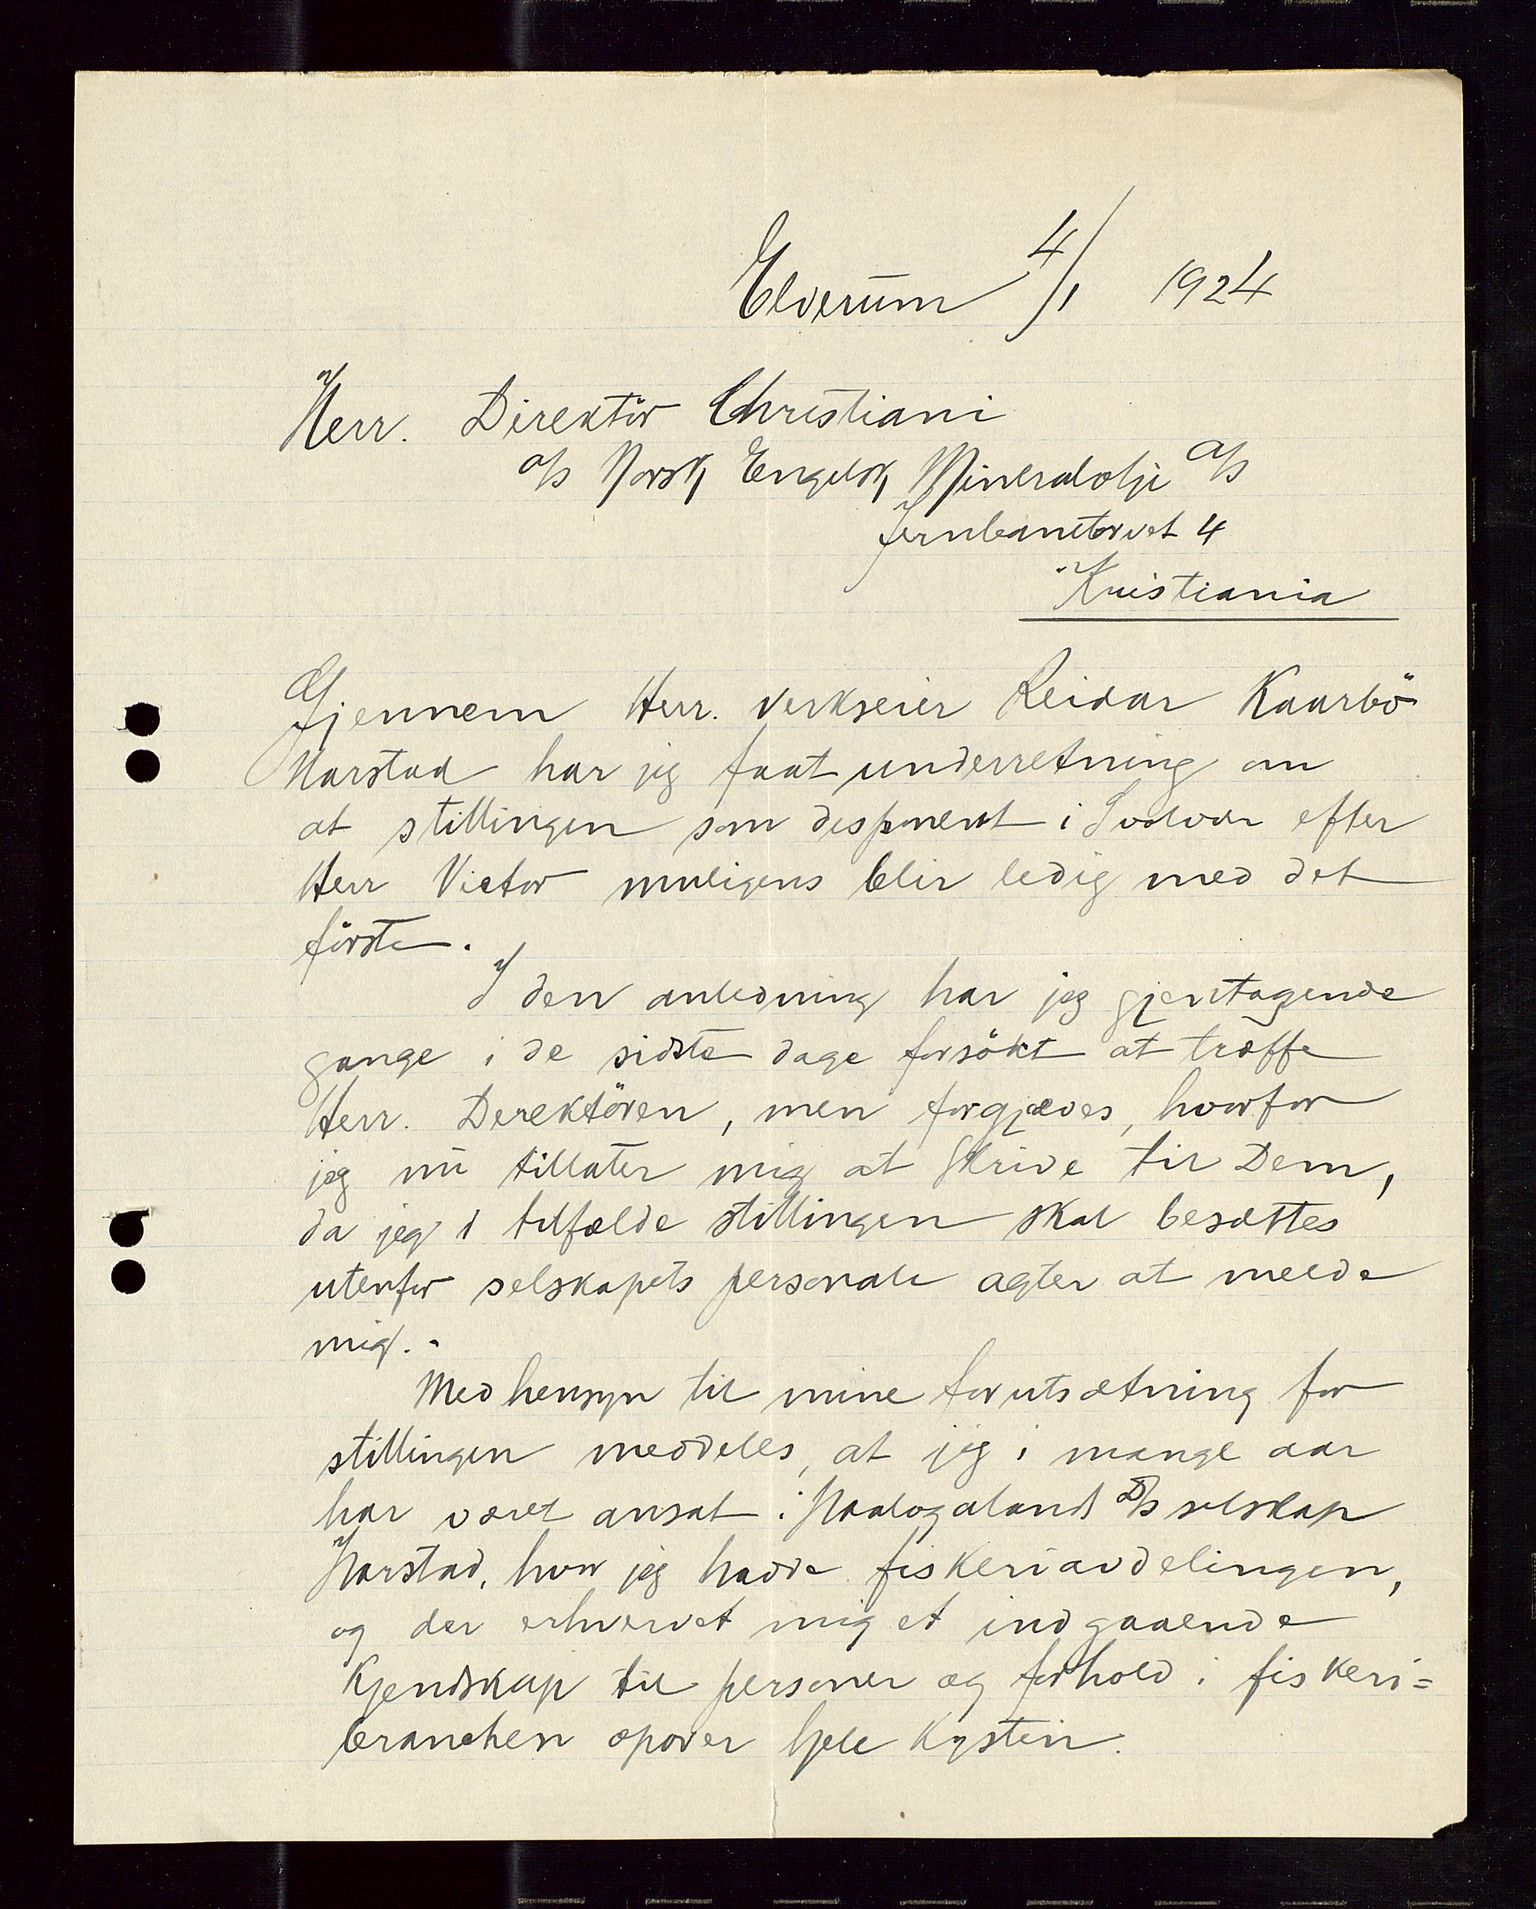 Elverum 4/1 1924
Herr. Direktör Christiani
a/s Norsk Engelsk Mineralolje a/s
Jernbanetorvet 4
Kristiania
Gjennem Herr. verkseier Reidar Kaarbö
Harstad har jeg faat underretning om
at stillingen som disponent i Svolvær efter
Herr Victor muligens blir ledig med det
förste.
I den anledning har jeg gjentagende
gange i de sidste dage forsökt at træffe
Herr. Direktören, men forgjæves, hvorfor
jeg nu tillater mig at skrive til Dem,
da jeg i tilfælde stillingen skal besættes
utenfor selskapets personale agter at melde
mig. -
Med hensyn til mine forutsætning for
stillingen meddeles, at jeg i mange aar
har været ansat i Haalogalands D/s selskap
Harstad, hvor jeg hadde fiskeriavdelingen,
og der erhvervet mig et indgaaende
Kjendskap til personer og forhold i fiskeri=
branchen opover hele Kysten.